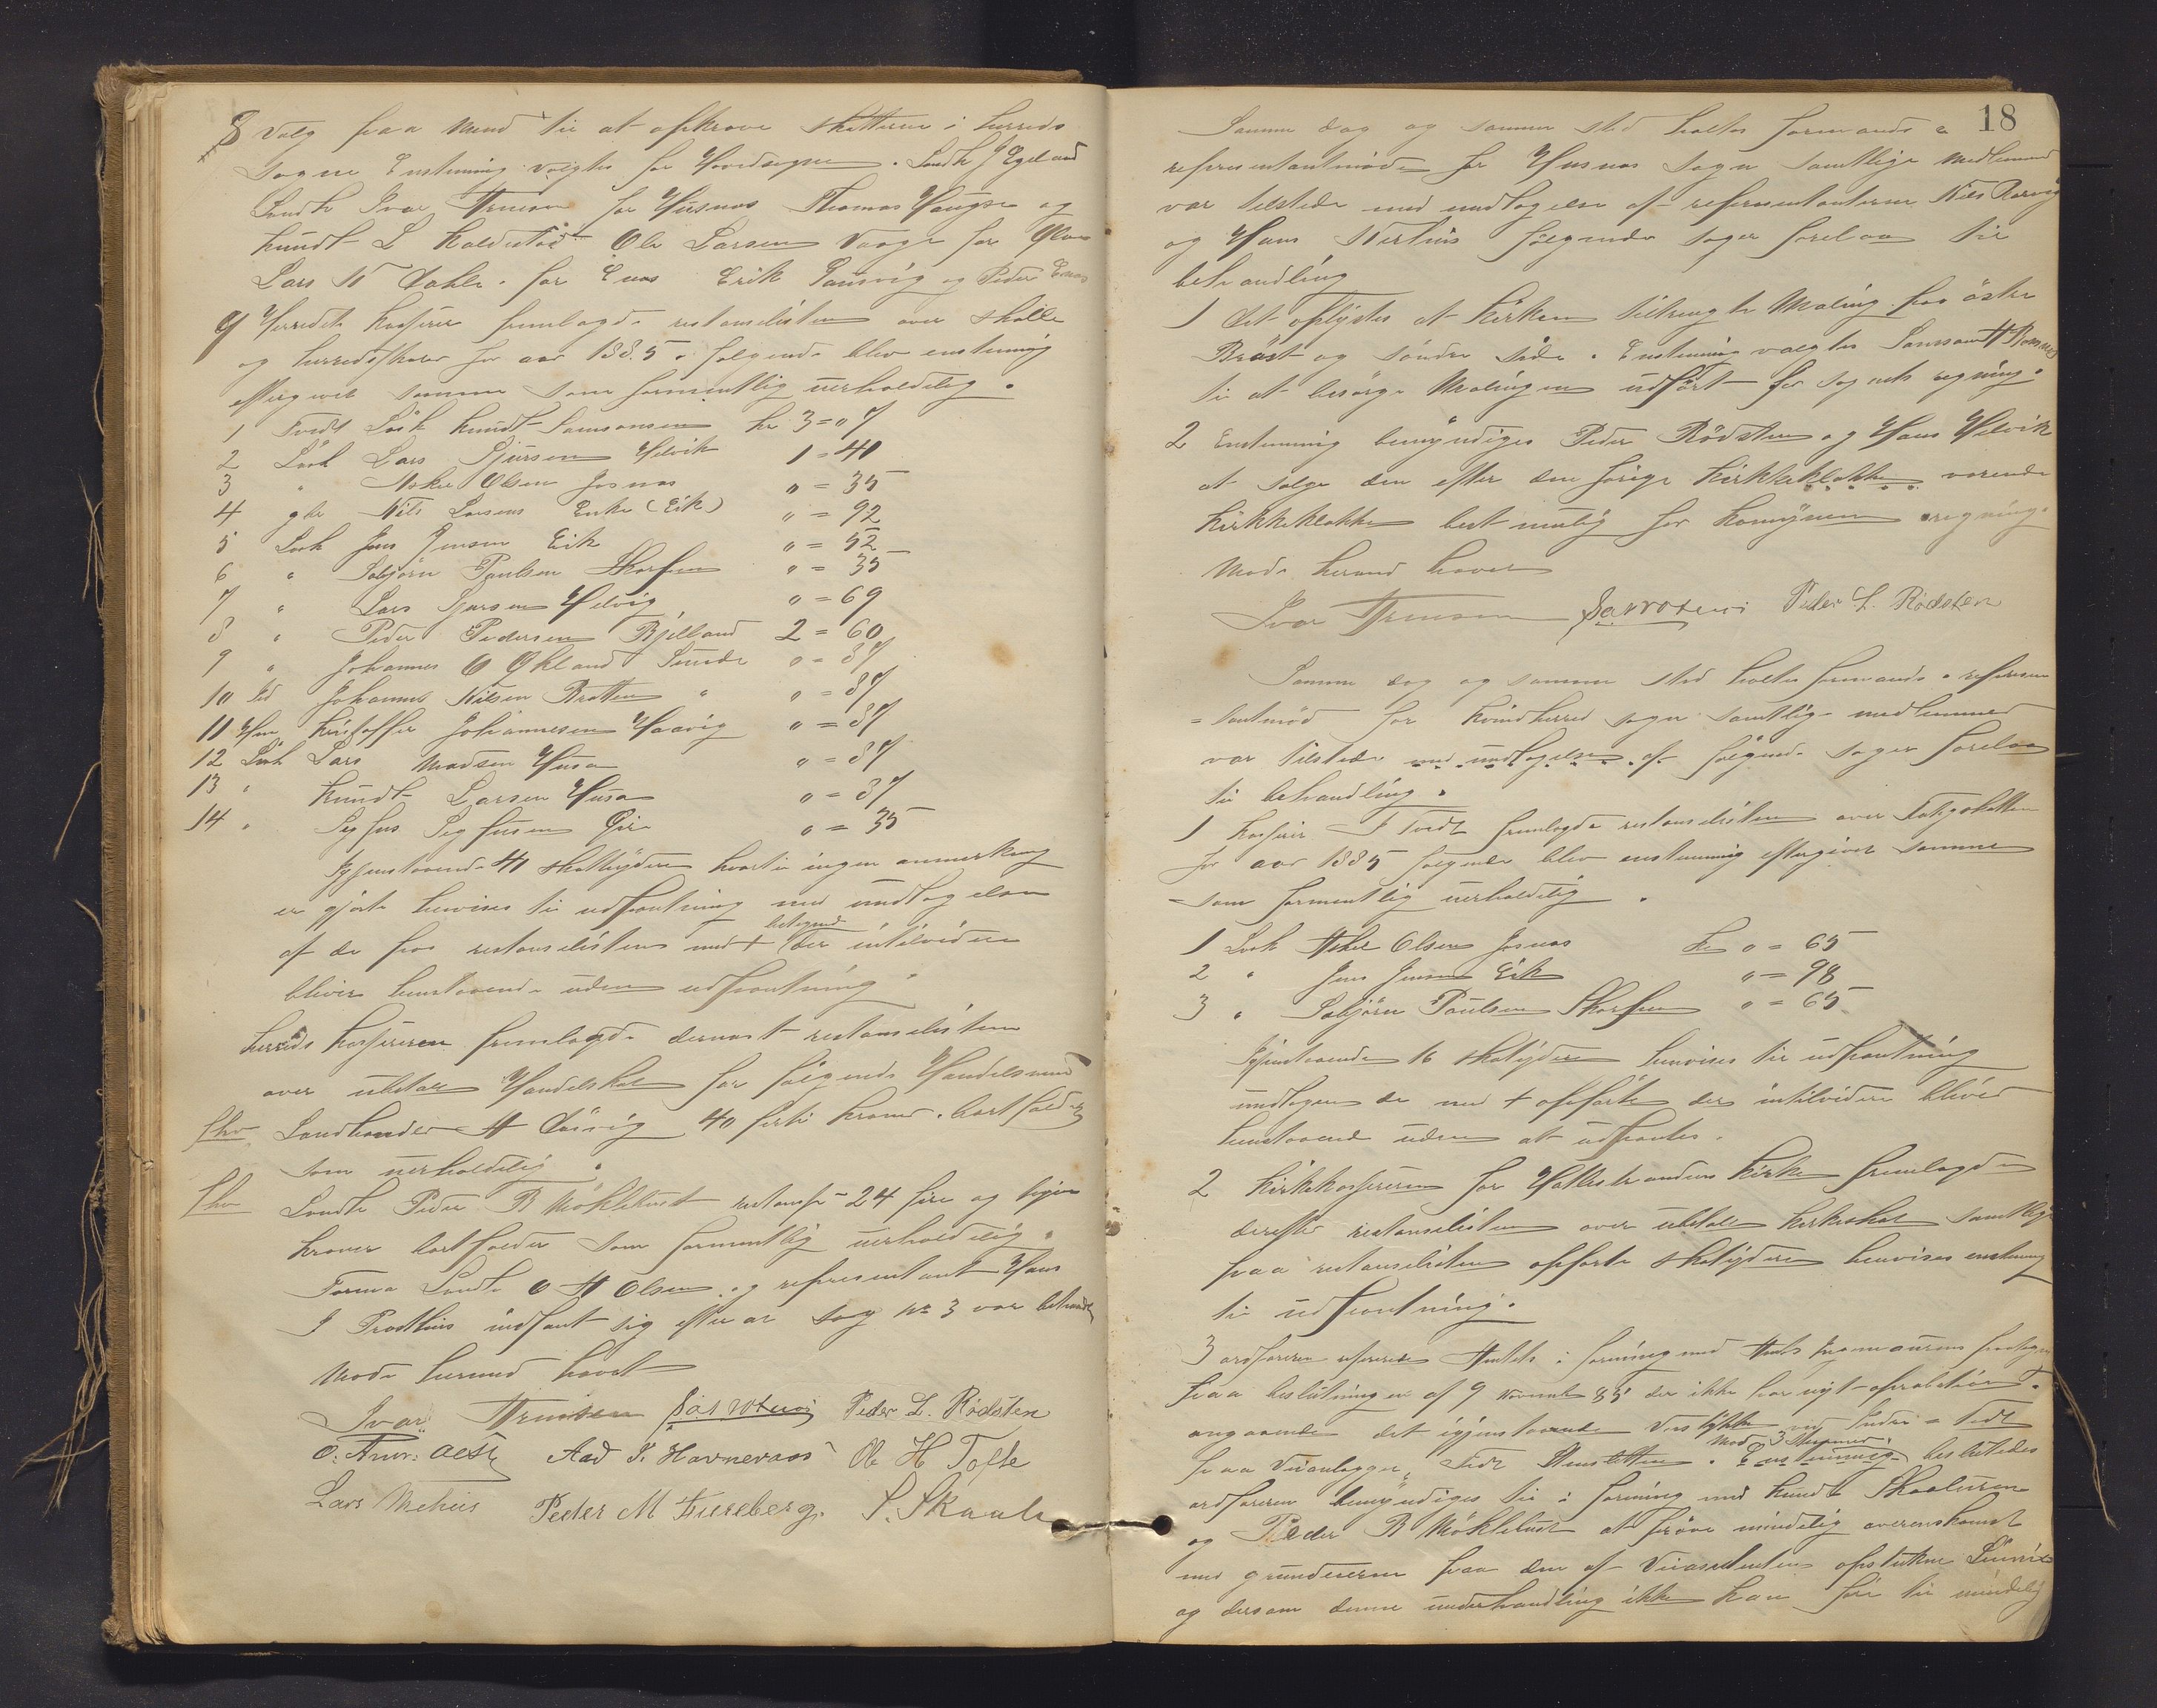 8 Valg paa Mend til at opkræve skatterne i herreds
sogne Enstemmig valgtes for Hovedsognen. Landh J Egeland
Landh Ivar Arnesen for Husnæs Thomas Haugse og
Knudt L Ole Larsen Vaage for
Lars N Dahle. for Enæs Erik og Peder Enæs
9 Herreds kasserer fremlagde restanselisten over skole
og herredsskat for aar 1885. følgende blev enstemmig
eftergivet samme som formentlig uerholdelig.
1 Tredt Løsk Knudt Samsonsen kr 3 = 07
2 Løsk Lars Sjursen Helvik 1 = 40
3 " Asker Olsen Josnæs " = 35
4 gbr Nils Larsens Enke (Eik) " = 92
5 Løsk Jens Jensen Eik " = 52
6 " Sæbjørn Paulsen Skorpen " = 35
7 " Lars Sjursen Helvig " = 69
8 " Peder Pedersen Bjelland 2 = 60
9 " Johannes O Økland Sunde " = 87
10 Johannes Nilsen Bratten " " = 87
11 Hm Kristoffer Johannesen Haavig " = 87
12 Løsk Lars Madsen Husa " = 87
13 " Knudt Larsen Husa " = 87
14 " Sigfus Sigfusen " = 35
Igjenstaaende 40 skatydere hvortil ingen anmerkning
er gjort henvises til udpantning med undtagelse
af de paa restanselisten med +
betegnede
der intilvidere
bliver henstaaende uden udpantning
herreds kassereren fremlagde dernæst restanselisten
over ubetalt Handelskat for følgende Handelsmend
Landhander A 40 førti kroner. bortfalder
som uerholdelig.
Landh Peder R Møklebust restanse 24 fire og tyve
kroner bortfalder som formentlig uerholdelig.
Forma Landh O H Olsen og representant Hans
J indfant sig efter at sag No 3 var behandl
Møde hermed hævet
Ivar Arnesen Peder L. Rødsten
Aad T. Havneraas Ole H Tofte
Lars Mehus Peder M Fureberg. S. Skaale
18
Samme dag og samme sted holtes formands &
representantmøde for Husnæs Sogn samtlige medlemmer
var tilstede med undtagelse af representanterne Nils Rørvig
og Hans følgende sager forelaa til
behandling
1 Det oplystes at Kirken tiltrengte Maling paa østre
Brøst og søndre side. Enstemmig valgtes Samson H
til at besørge Malingen udført for sognets regning.
2 Enstemmig bemyndiges Peder Rødsten og Hans Helvik
at selge den efter den forige Kirkkeklokke værende
Kirkkeklokke best mulig for komunens regning.
Møde hermed hævet
Ivar Arnesen Peder L. Rødsten
Samme dag og samme sted holtes formands & represen
=tantmød for Kvindherred sogn samtlige medlemmer
var tilstede med undtagelse af følgende sager forelaa
til behandling.
1 Kasserer J Tvedt fremlagde restanselisten over Fatigskatten
for aar 1885 følgende blev enstemmig eftergivet samme
som formentlig uerholdelig.
1 Løsk Asker Olsen Josnæs kr " = 65
2 " Jens Jensen Eik " = 98
3 " Sæbjørn Paulsen Skorpen " = 65
Igjenstaaende 16 skatydere henvises til udpantning
undtagen de med + opførte der intilvidere bliver
henstaaende uden at udpantes.
2 Kirkekassereren for Hatlestrandens Kirke fremlagde
derefter restanselisten over ubetalt kirkeskat samtlige
paa restanselisten opførte skatydere henvises enstemmig
til udpantning.
3 ordføreren refererede Amtets i forening med
paa beslutningen af 9 Novemb 85 der ikke har nygt aprobation
angaaende det igjenstaaende Veistykke
paa Veianlægget
Mod 3 Stemmer
Enstemmig besluttedes
ordføreren bemyndiges til i forening med Knudt Skaaluren
og Peder R Møklebust at prøve mindelig overenskomst
med grundeierne paa den af Veiassistenten opstukne Linnie
og dersom denne underhandling ikke kan føre til mindelig